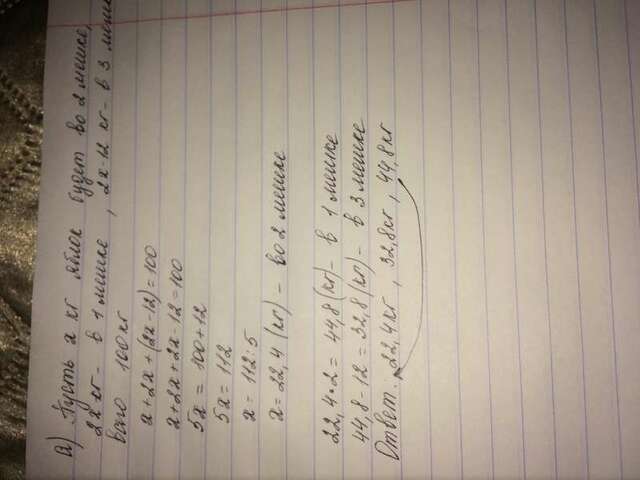 а) Пусть x кг яблок будет во 2 мешке,
2x кг - в 1 мешке , 2x-12 кг - в 3 мешке
всего 100 кг
x+2x+(2x-12)=100
x+2x+2x-12=100
5x = 100+12
5x = 112
x = 112:5
x = 22,4 (кг) - во 2 мешке
22,4•2 = 44,8 (кг) - в 1 мешке
44,8-12 = 32,8 (кг) - в 3 мешке
Ответ: 22,4 кг , 32,8 кг , 44,8 кг